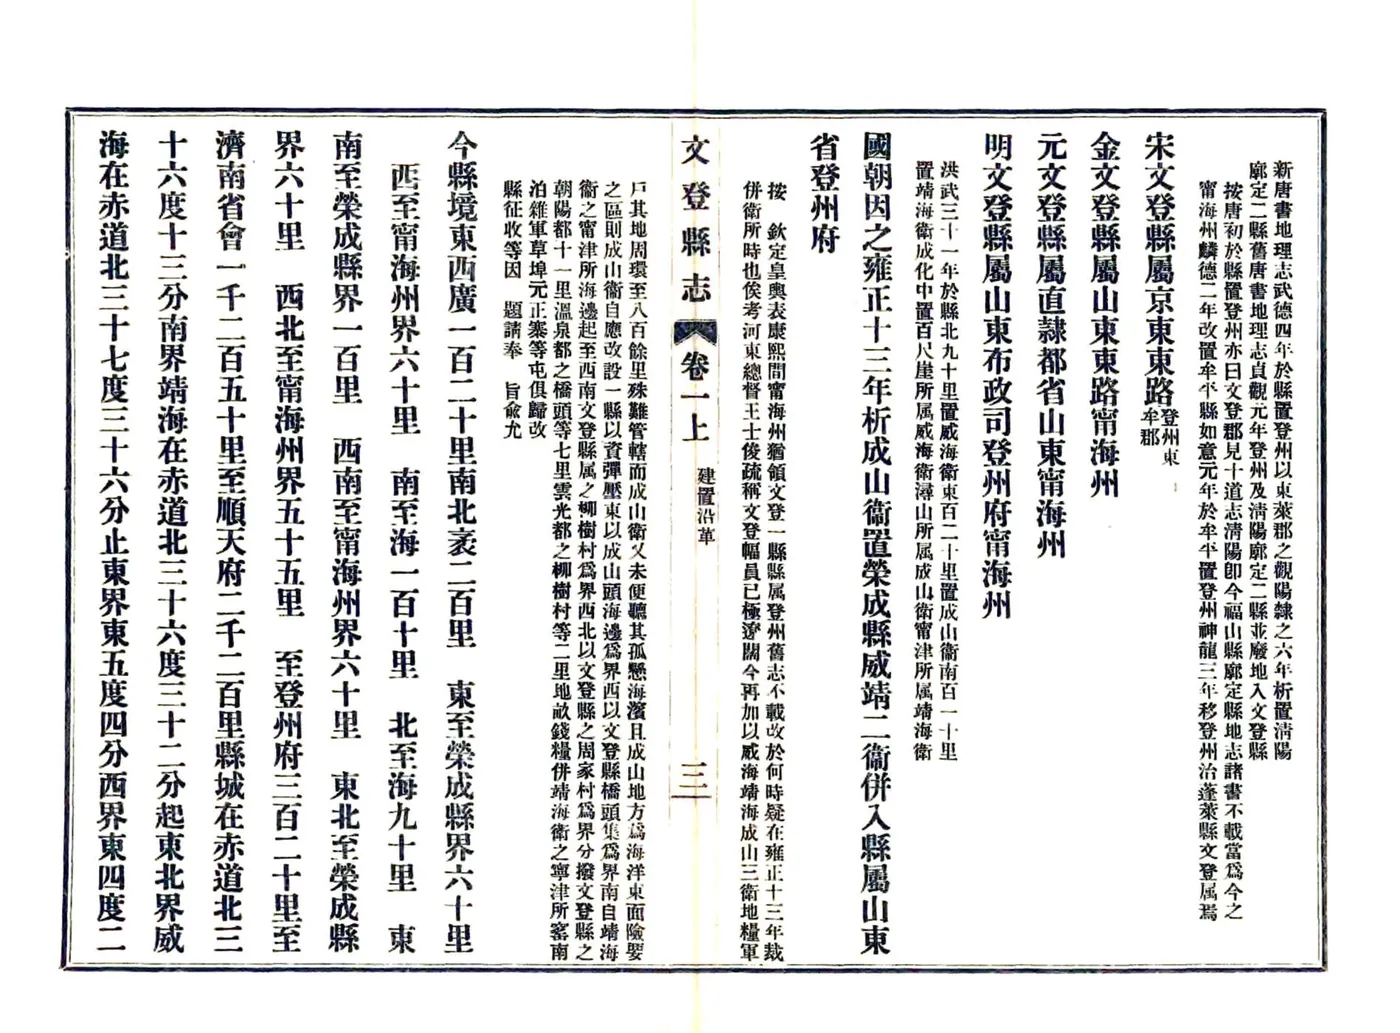 新唐書地理志武德四年於縣置登州以東萊郡之觀陽隸之六年析置清陽
廓定二縣舊唐書地理志貞觀元年登州及清陽廓定二縣並廢地入文登縣
按唐初於縣置登州亦曰文登郡見十道志清陽卽今福山縣廓定縣地志諸書不載當爲今之
甯海州麟德二年改置牟平縣如意元年於牟平置登州神龍三年移登州治蓬萊縣文登属焉
宋文登縣屬京東東路登州東
牟郡
金文登縣屬山東東路甯海州
元文登縣屬直隷都省山東甯海州
明文登縣屬山東布政司登州府甯海州
洪武三十一年於縣北九十里置威海衞東百二十里置成山衞南百一十里
置靖海衞成化中置百尺崖所属威海衞潯山所属成山衞甯津所属靖海衞
國朝因之雍正十三年析成山衞置榮成縣威靖二衞併入縣屬山東
省登州府
按　欽定皇輿表康熙間甯海州猶領文登一縣縣属登州舊志不載改於何時疑在雍正十三年裁
併衞所時也俟考河東總督王士俊疏稱文登幅員已極遼闊今再加以威海靖海成山三衞地糧軍
文登縣志
卷一上
建置沿革
三
戸其地周環至八百餘里殊難管轄而成山衞又未便聽其孤懸海濱且成山地方爲海洋東面險要
之區則成山衞自應改設一縣以資彈壓東以成山頭海邊爲界西以文登縣橋頭集爲界南自靖海
衞之甯津所海邊起至西南文登縣属之柳樹村爲界西北以文登縣之周家村爲界分撥文登縣之
朝陽都十一里溫泉都之橋頭等七里雲光都之柳樹村等二里地畝錢糧併靖海衞之寧津所窰南
泊雜軍草埠元正寨等屯俱歸改
縣征收等因　題請奉　旨俞允
今縣境東西廣一百二十里南北袤二百里　東至榮成縣界六十里
西至甯海州界六十里　南至海一百十里　北至海九十里　東
南至榮成縣界一百里　西南至甯海州界六十里　東北至榮成縣
界六十里　西北至甯海州界五十五里　至登州府三百二十里至
濟南省會一千二百五十里至順天府二千二百里縣城在赤道北三
十六度十三分南界靖海在赤道北三十六度三十二分起東北界威
海在赤道北三十七度三十六分止東界東五度四分西界東四度二